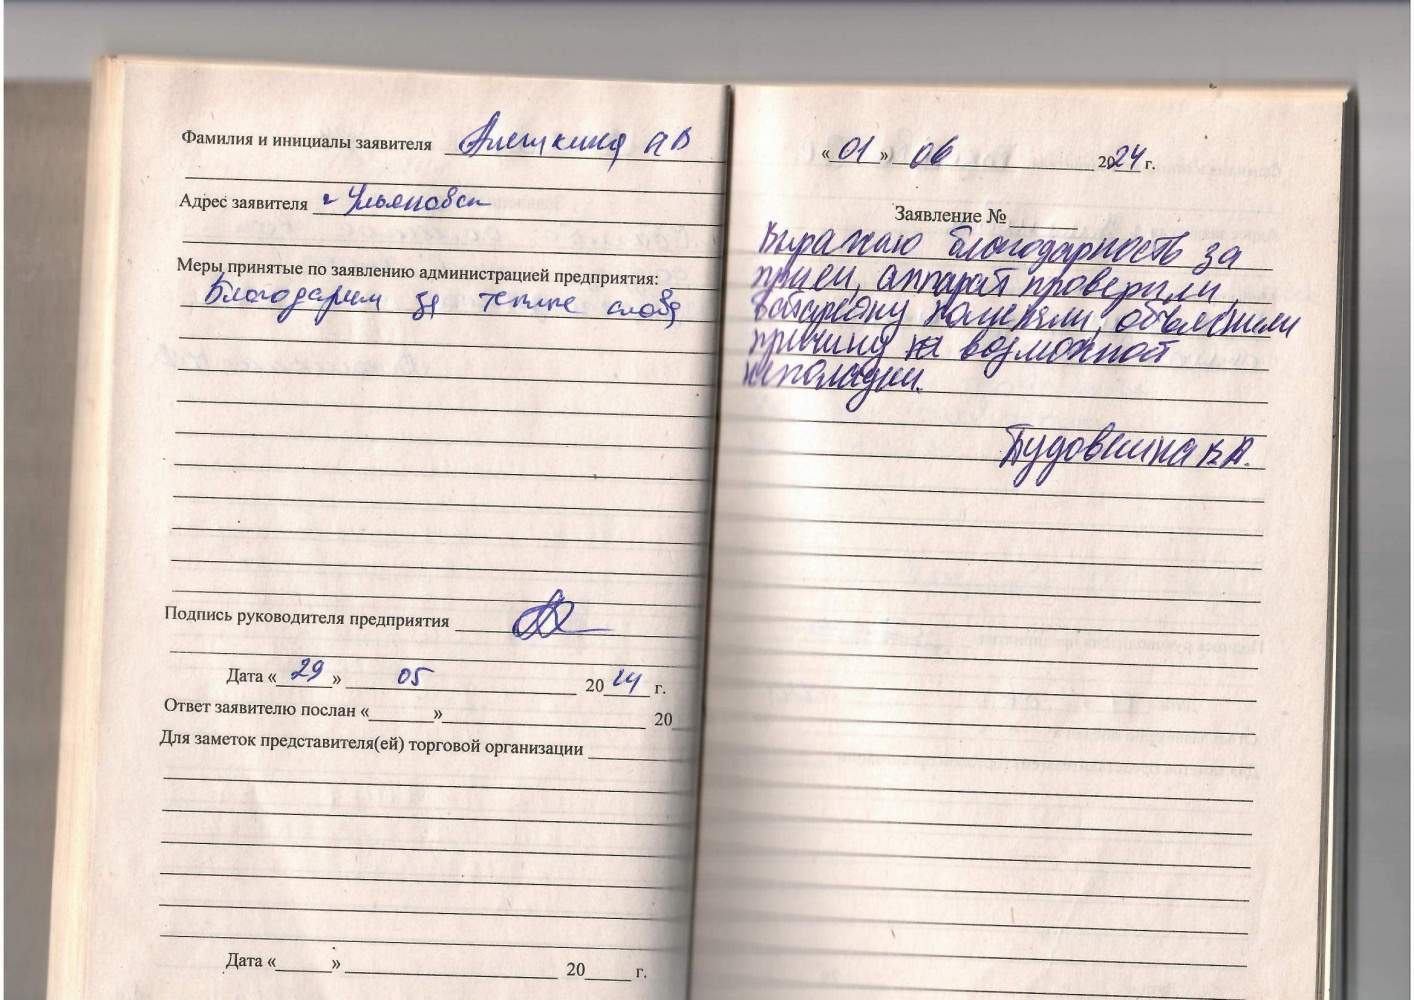 Фамилия и инициалы заявителя Алешкина АВ
Адрес заявителя г Ульяновск
Меры принятые по заявлению администрацией предприятия:
Благодарим за теплые слова
Подпись руководителя предприятия
Дата « 29 » 05 20 24 г.
Ответ заявителю послан « » 20
Для заметок представителя(ей) торговой организации
Дата « » 20 г.
« 01 » 06 2024 г.
Заявление №
Выражаю благодарность за
прием, аппарат проверили,
батарейку поменяли, объяснили
причину на возможной
неполадки.
Будовнина В.А.